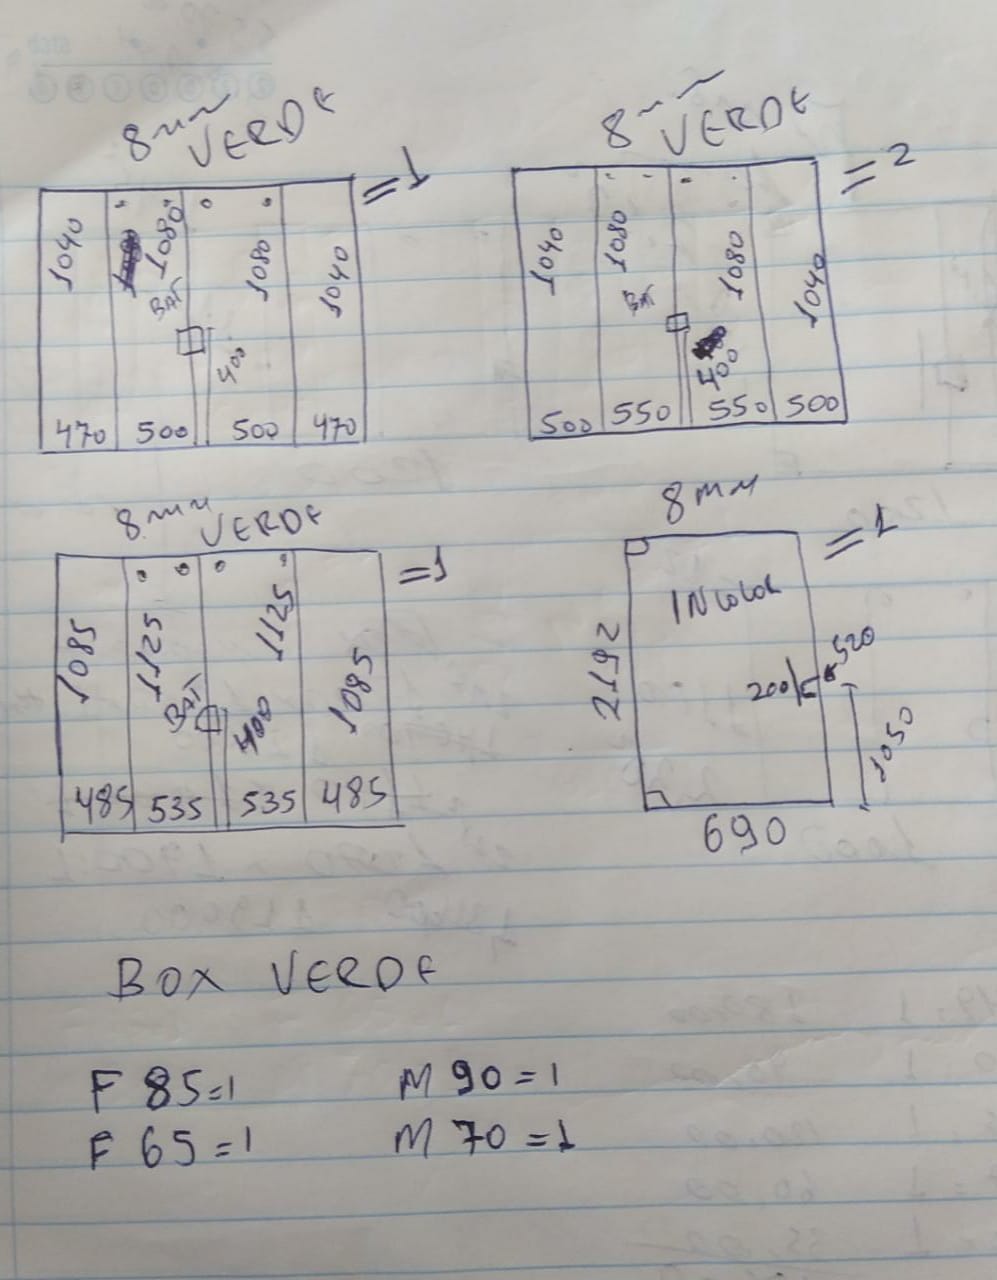 8mm VERDE
=1
1040
1080
1080
1040
BAT
400
470 500 500 470
8mm VERDE
=2
1040
1080
1080
1040
BAT
400
500 550 550 500
8mm VERDE
=1
1085
1125
1125
1085
BAT
400
485 535 535 485
8mm
=1
INColoR
2192
200
520
1050
690
BOX VERDE
F 85=1 M 90=1
F 65=1 M 70=1